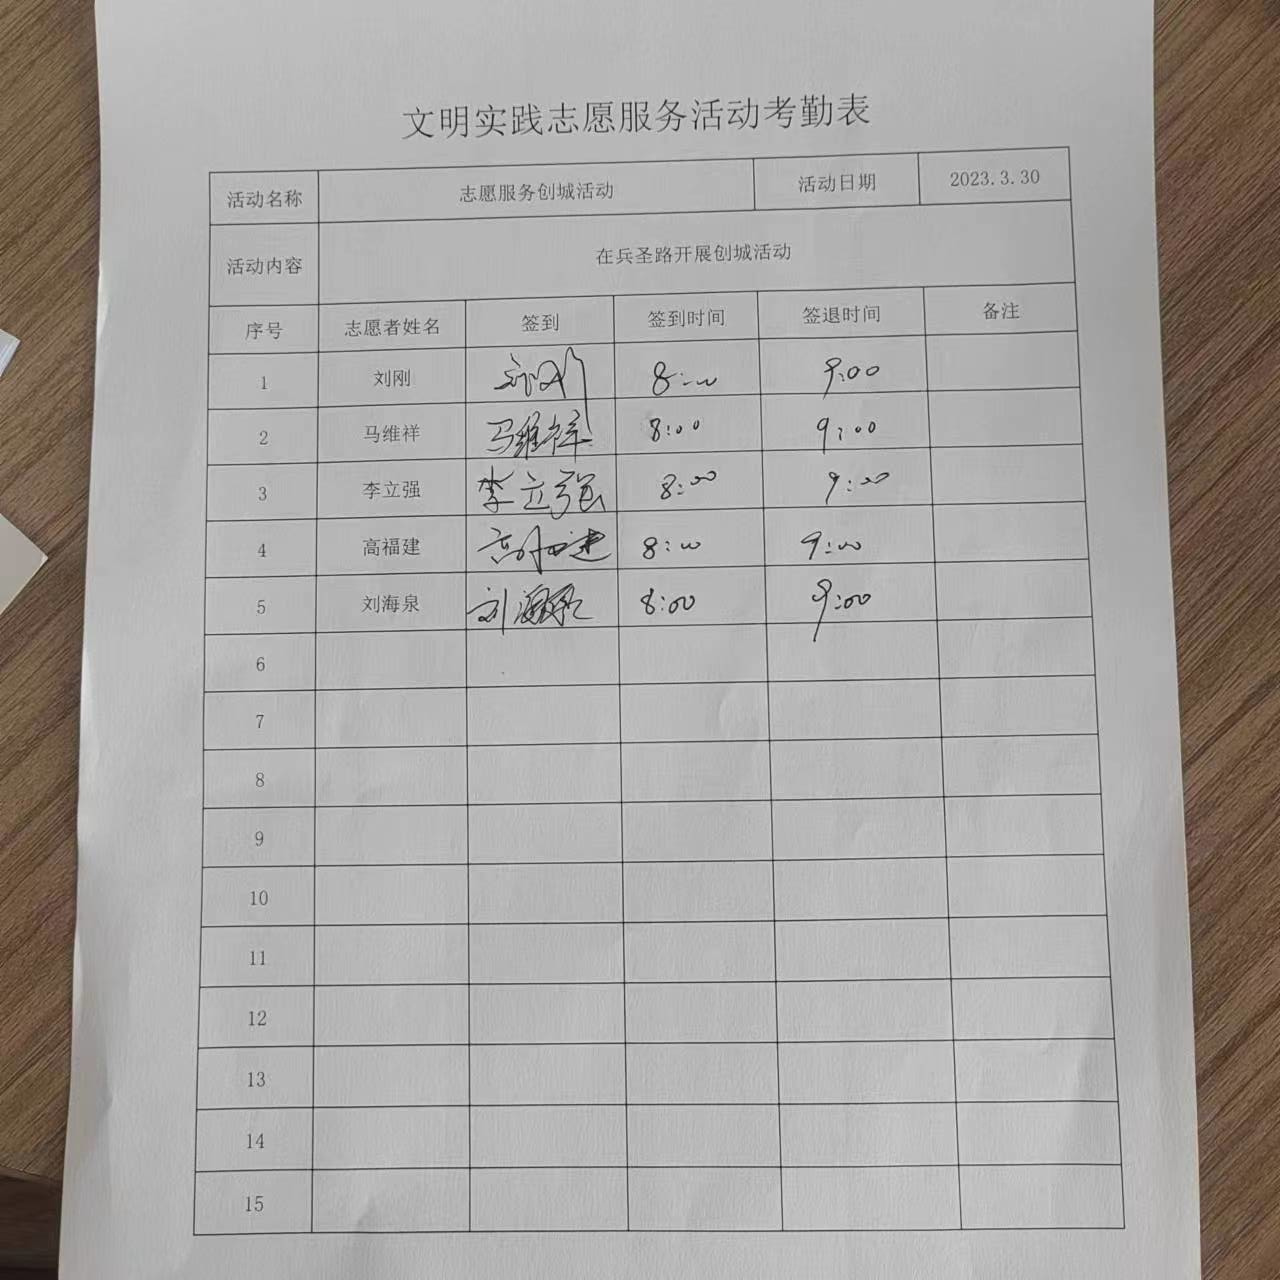 文明实践志愿服务活动考勤表
活动名称 志愿服务创城活动 活动日期 2023.3.30
活动内容 在兵圣路开展创城活动
序号 志愿者姓名 签到 签到时间 签退时间 备注
1 刘刚 刘刚 8:00 9:00
2 马维祥 马维祥 8:00 9:00
3 李立强 李立强 8:00 9:00
4 高福建 高福建 8:00 9:00
5 刘海泉 刘海泉 8:00 9:00
6
7
8
9
10
11
12
13
14
15